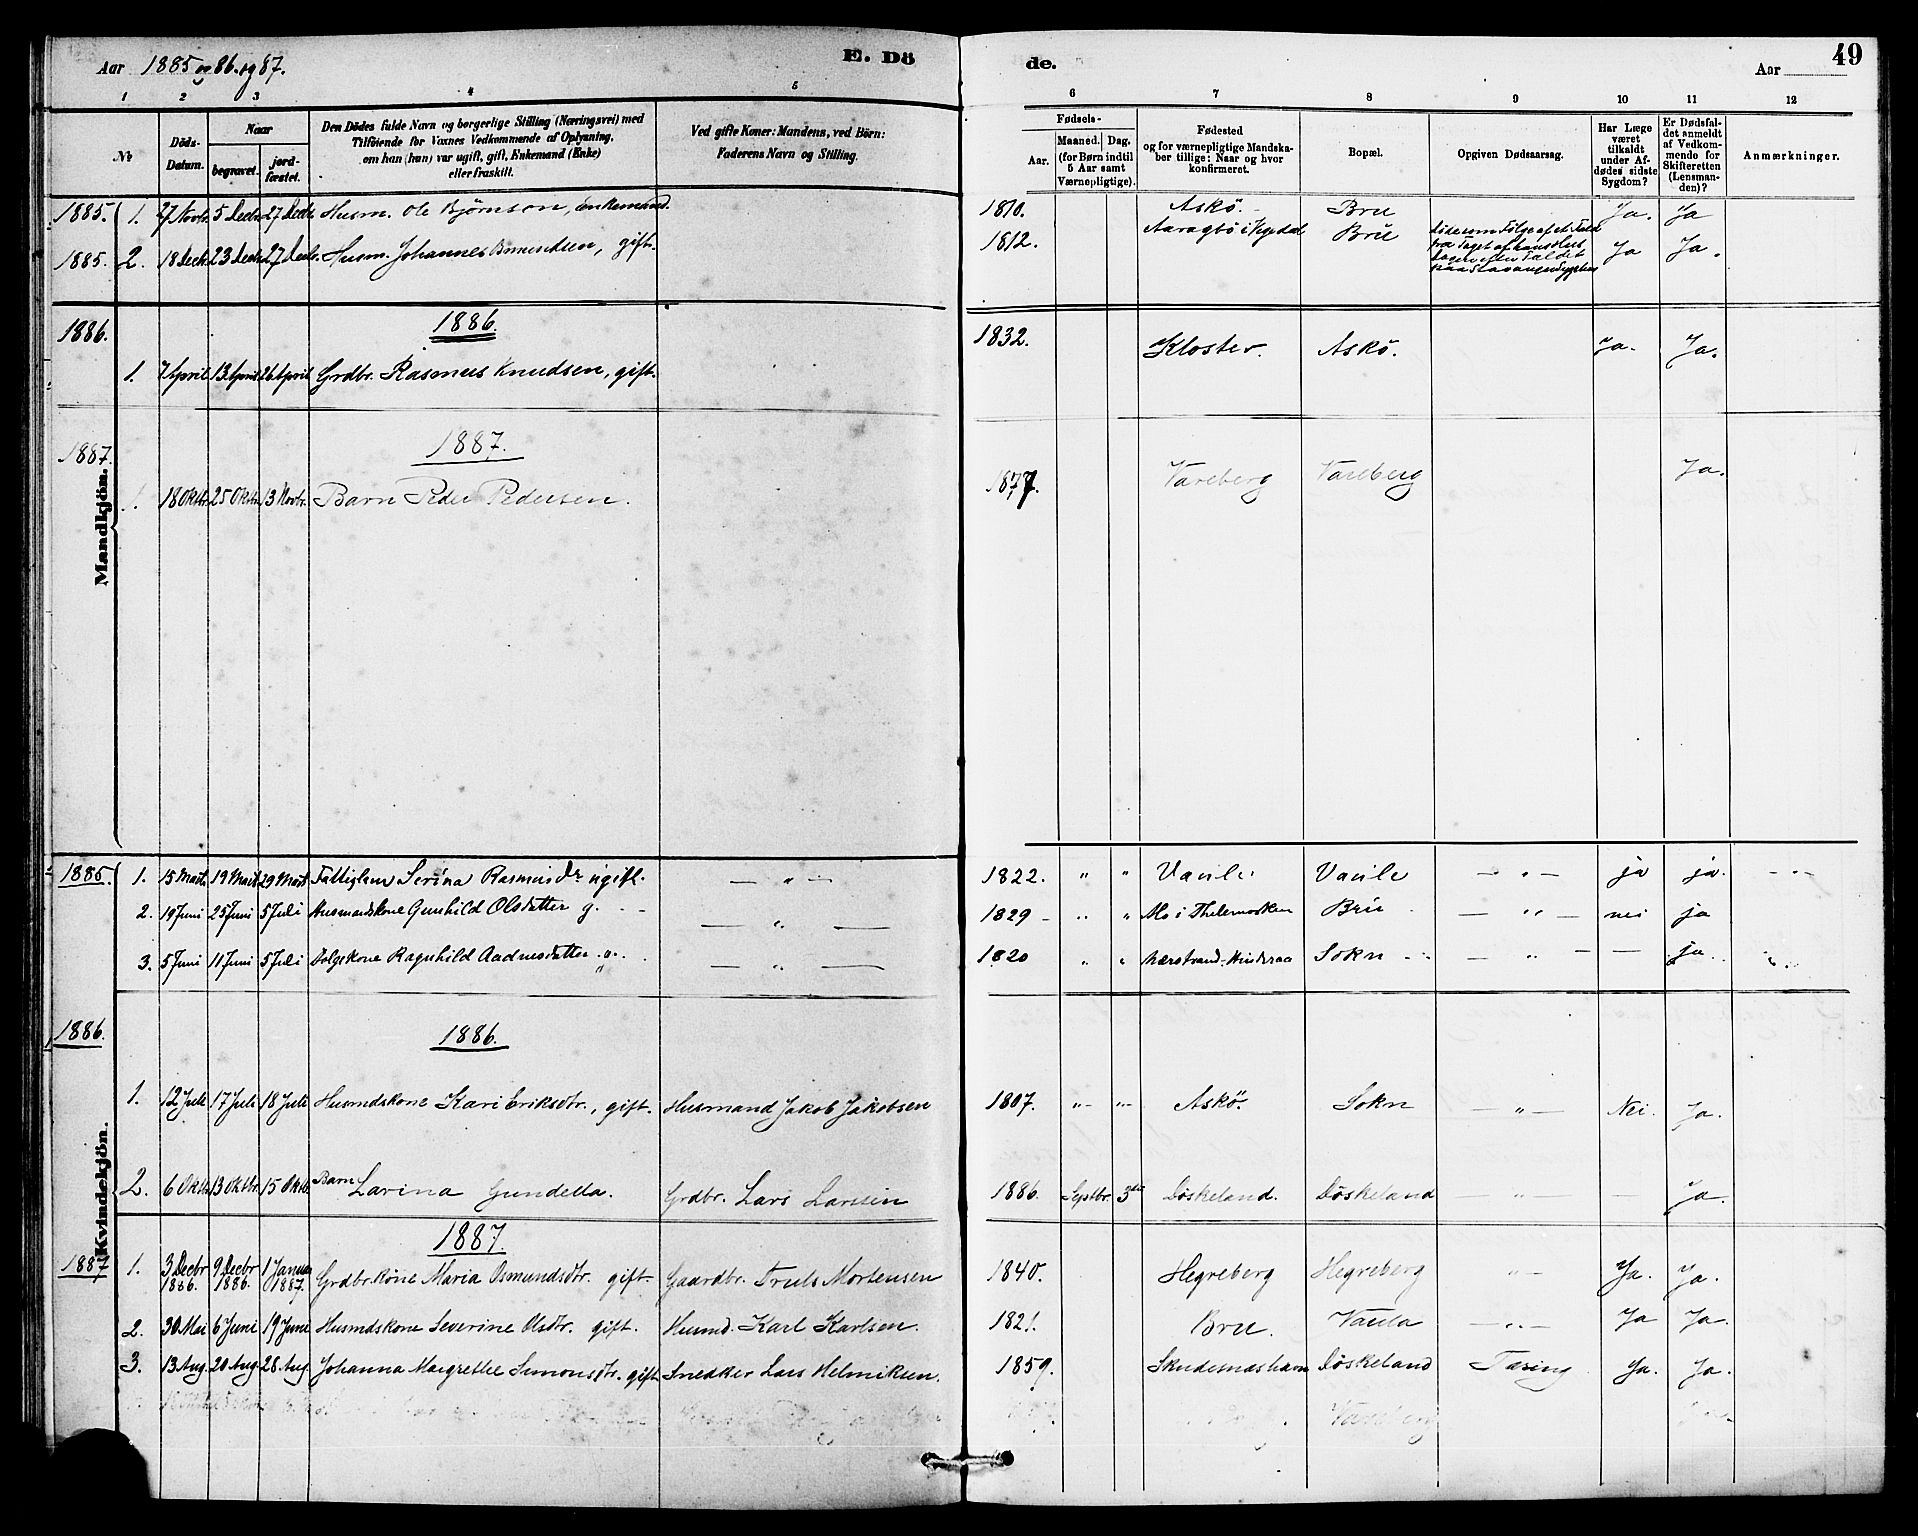 Aar 1885 og 86. og 87.
E. Dö
de.
Aar
49
1 2 3 4 5 6 7 8 9 10 11 12
№
Döds-Datum.
Naar
begravet.
jord-fæstet.
Den Dödes fulde Navn og borgerlige Stilling (Næringsvei) med
Tilföiende for Voxnes Vedkommende af Oplysning,
om han (hun) var ugift, gift, Enkemand (Enke)
eller fraskilt.
Ved gifte Koner: Mandens, ved Börn:
Faderens Navn og Stilling.
Fødsels-
Aar.
Maaned.
Dag.
(for Børn indtil
5 Aar samt
Værnepligtige).
Fødested
og for værnepligtige Mandska-
ber tillige: Naar og hvor
konfirmeret.
Bopæl.
Opgiven Dødsaarsag.
Har Læge
været
tilkaldt
under Af-
dødes sidste
Sygdom?
Er Dødsfal-
det anmeldt
af Vedkom-
mende for
Skifteretten
(Lensman-
den)?
Anmærkninger.
Mandkjön.
1885. 1. 27 Novbr 5 Decbr 27 Decbr Husm. Ole Björnson, Enkemand. 1810. Askö. Bru Ja. Ja
1885. 2. 18 Decbr 23 Decbr 27 Decbr. Husm. Johannes gift. 1812. Bru Ja Ja.
1886. 1886.
1. 7 April 13 April 26 April Grdbr. Rasmus Knudsen, gift. 1832. Kloster. Askö. Ja. Ja.
1887. 1887.
1. 18 Oktbr. 25 Oktbr 13 Novbr. Barn Peder Pedersen. 1877. Vareberg Vareberg Ja.
Kvindekjön.
1885. 1. 15 Marts 19 Marts 29 Marts Fattiglem Serina Rasmusdr ugift. — " — 1822. " " Vaule Vaule — " — ja ja. — " —
2. 19 Juni 25 Juni 5 Juli Husmandskone Gunhild Olsdatter g. — " — 1829 " " Mo i Thelemarken Bru — " — nei ja
3. 5 Juni 11 Juni 5 Juli Ragnhild Aadnesdatter " — " — 1820 " " Nærstrand Sokn — " — — ja.
1886. 1886.
1. 12 Juli 17 Juli 18 Juli Husmdskone Kari Eriksdtr., gift. Husmand Jakob Jakobsen 1807. " " Askö. Sokn — " — Nei. Ja.
2. 6 Oktbr 13 Oktbr. 15 Oktbr Barn Larina Gundella. Grdbr. Lars Larssen 1886. Septbr. 3die Döskeland. Döskeland — " — — Ja.
1887. 1887.
1. 3 Decbr 1886. 9 Decbr 1886. 1 Januar 1887. Grdbr.kone Maria Osmundsdtr. gift. Gaardbr. Truls Mortensen 1840. Hegreberg Hegreberg " Ja. Ja.
2. 30 Mai 6 Juni 19 Juni Husmdskone Severine Olsdtr. gift. Husmd. Karl Karlsen. 1821. Bru. Vaula — " — Ja Ja.
3. 13 Aug. 20 Aug. 28 Aug. Johanna Margrethe Simonsdtr. gift Snedker Lars Helmiksen. 1859. Skudesneshavn Döskeland Tæring Ja. Ja.
Vareberg